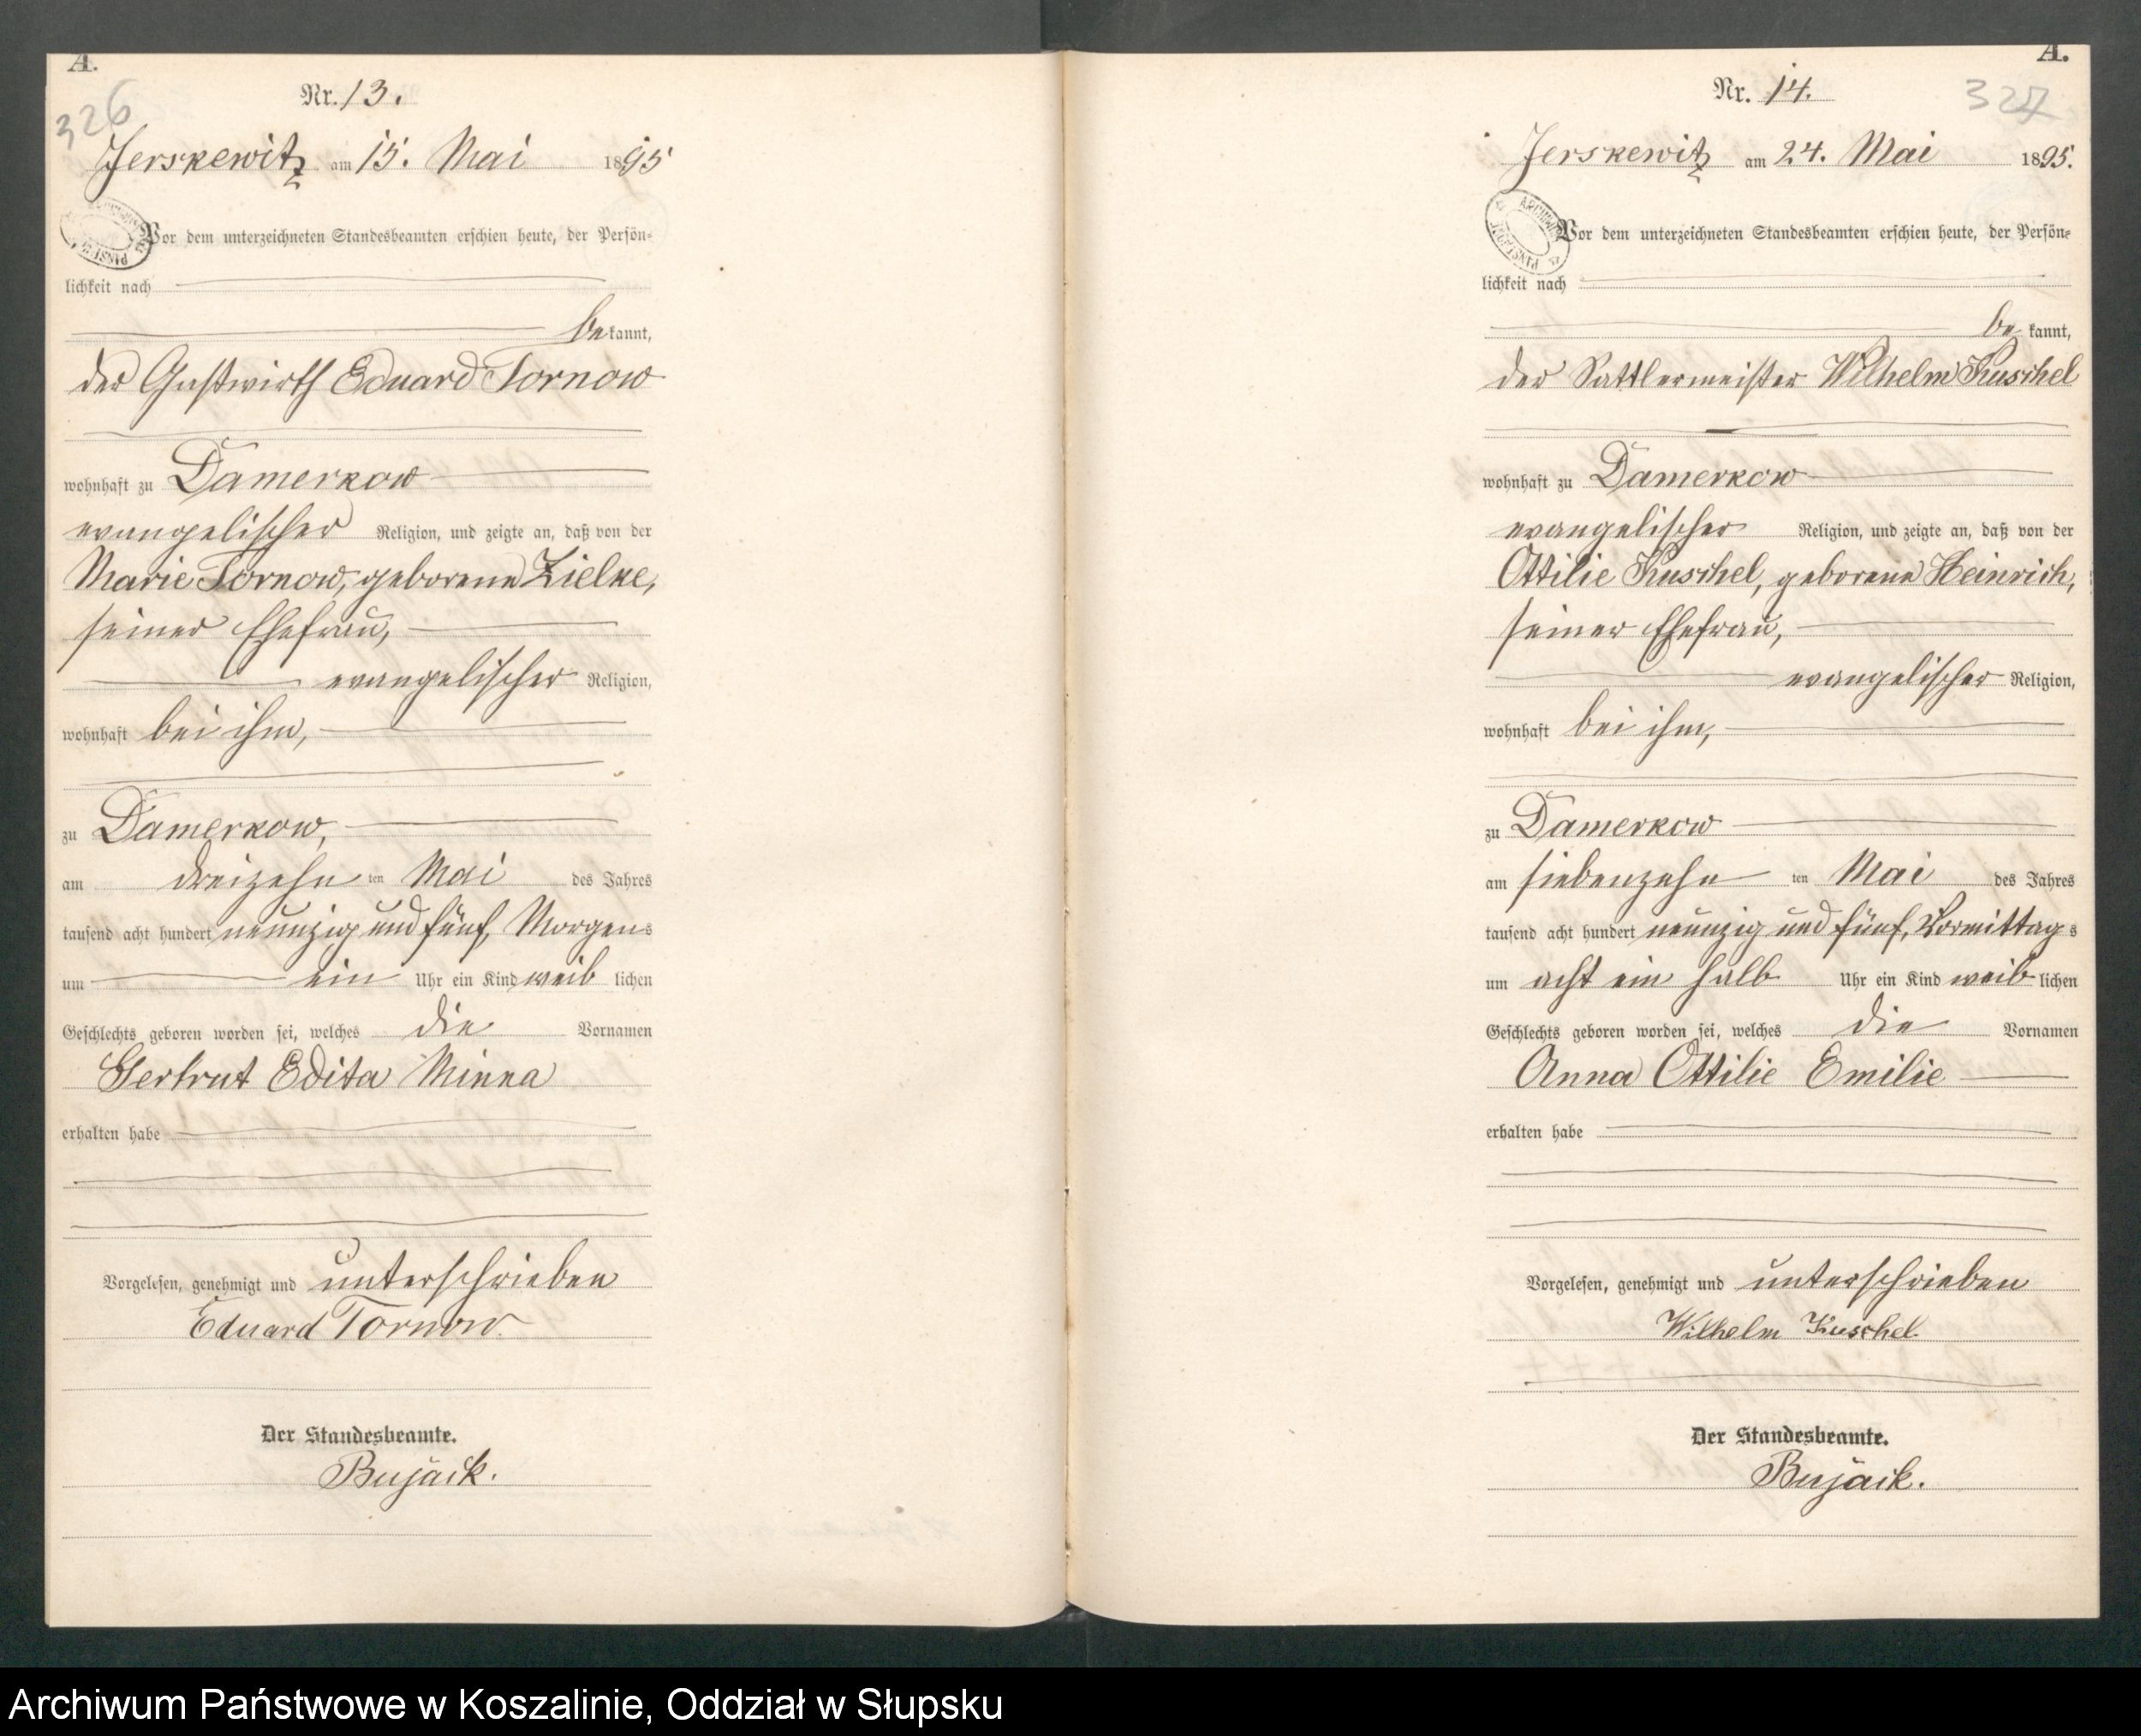 A.
326
Nr. 13.
Jerskewitz am 15. Mai 1895
Vor dem unterzeichneten Standesbeamten erschien heute, der Persön-
lichkeit nach
be kannt,
der Gastwirth Eduard Tornow
wohnhaft zu Damerkow
evangelischer Religion, und zeigte an, daß von der
Marie Tornow, geborene Zielke,
seiner Ehefrau,
evangelischer Religion,
wohnhaft bei ihm,
zu Damerkow,
am dreizehn ten Mai des Jahres
tausend acht hundert neunzig und fünf, Morgens
um ein Uhr ein Kind weib lichen
Geschlechts geboren worden sei, welches die Vornamen
Gertrut Edita Minna
erhalten habe
Vorgelesen, genehmigt und unterschrieben
Eduard Tornow.
Der Standesbeamte.
Bujack.
A.
327
Nr. 14.
Jerskewitz am 24. Mai 1895.
ARCHIWUM PAŃSTWOWE
Vor dem unterzeichneten Standesbeamten erschien heute, der Persön-
lichkeit nach
be kannt,
der Sattlermeister Wilhelm Kuschel
wohnhaft zu Damerkow
evangelischer Religion, und zeigte an, daß von der
Ottilie Kuschel, geborene Heinrich,
seiner Ehefrau,
evangelischer Religion,
wohnhaft bei ihm,
zu Damerkow
am siebenzehn ten Mai des Jahres
tausend acht hundert neunzig und fünf, Vormittags
um acht ein halb Uhr ein Kind weib lichen
Geschlechts geboren worden sei, welches die Vornamen
Anna Ottilie Emilie
erhalten habe
Vorgelesen, genehmigt und unterschrieben
Wilhelm Kuschel.
Der Standesbeamte.
Bujack.
Archiwum Państwowe w Koszalinie, Oddział w Słupsku